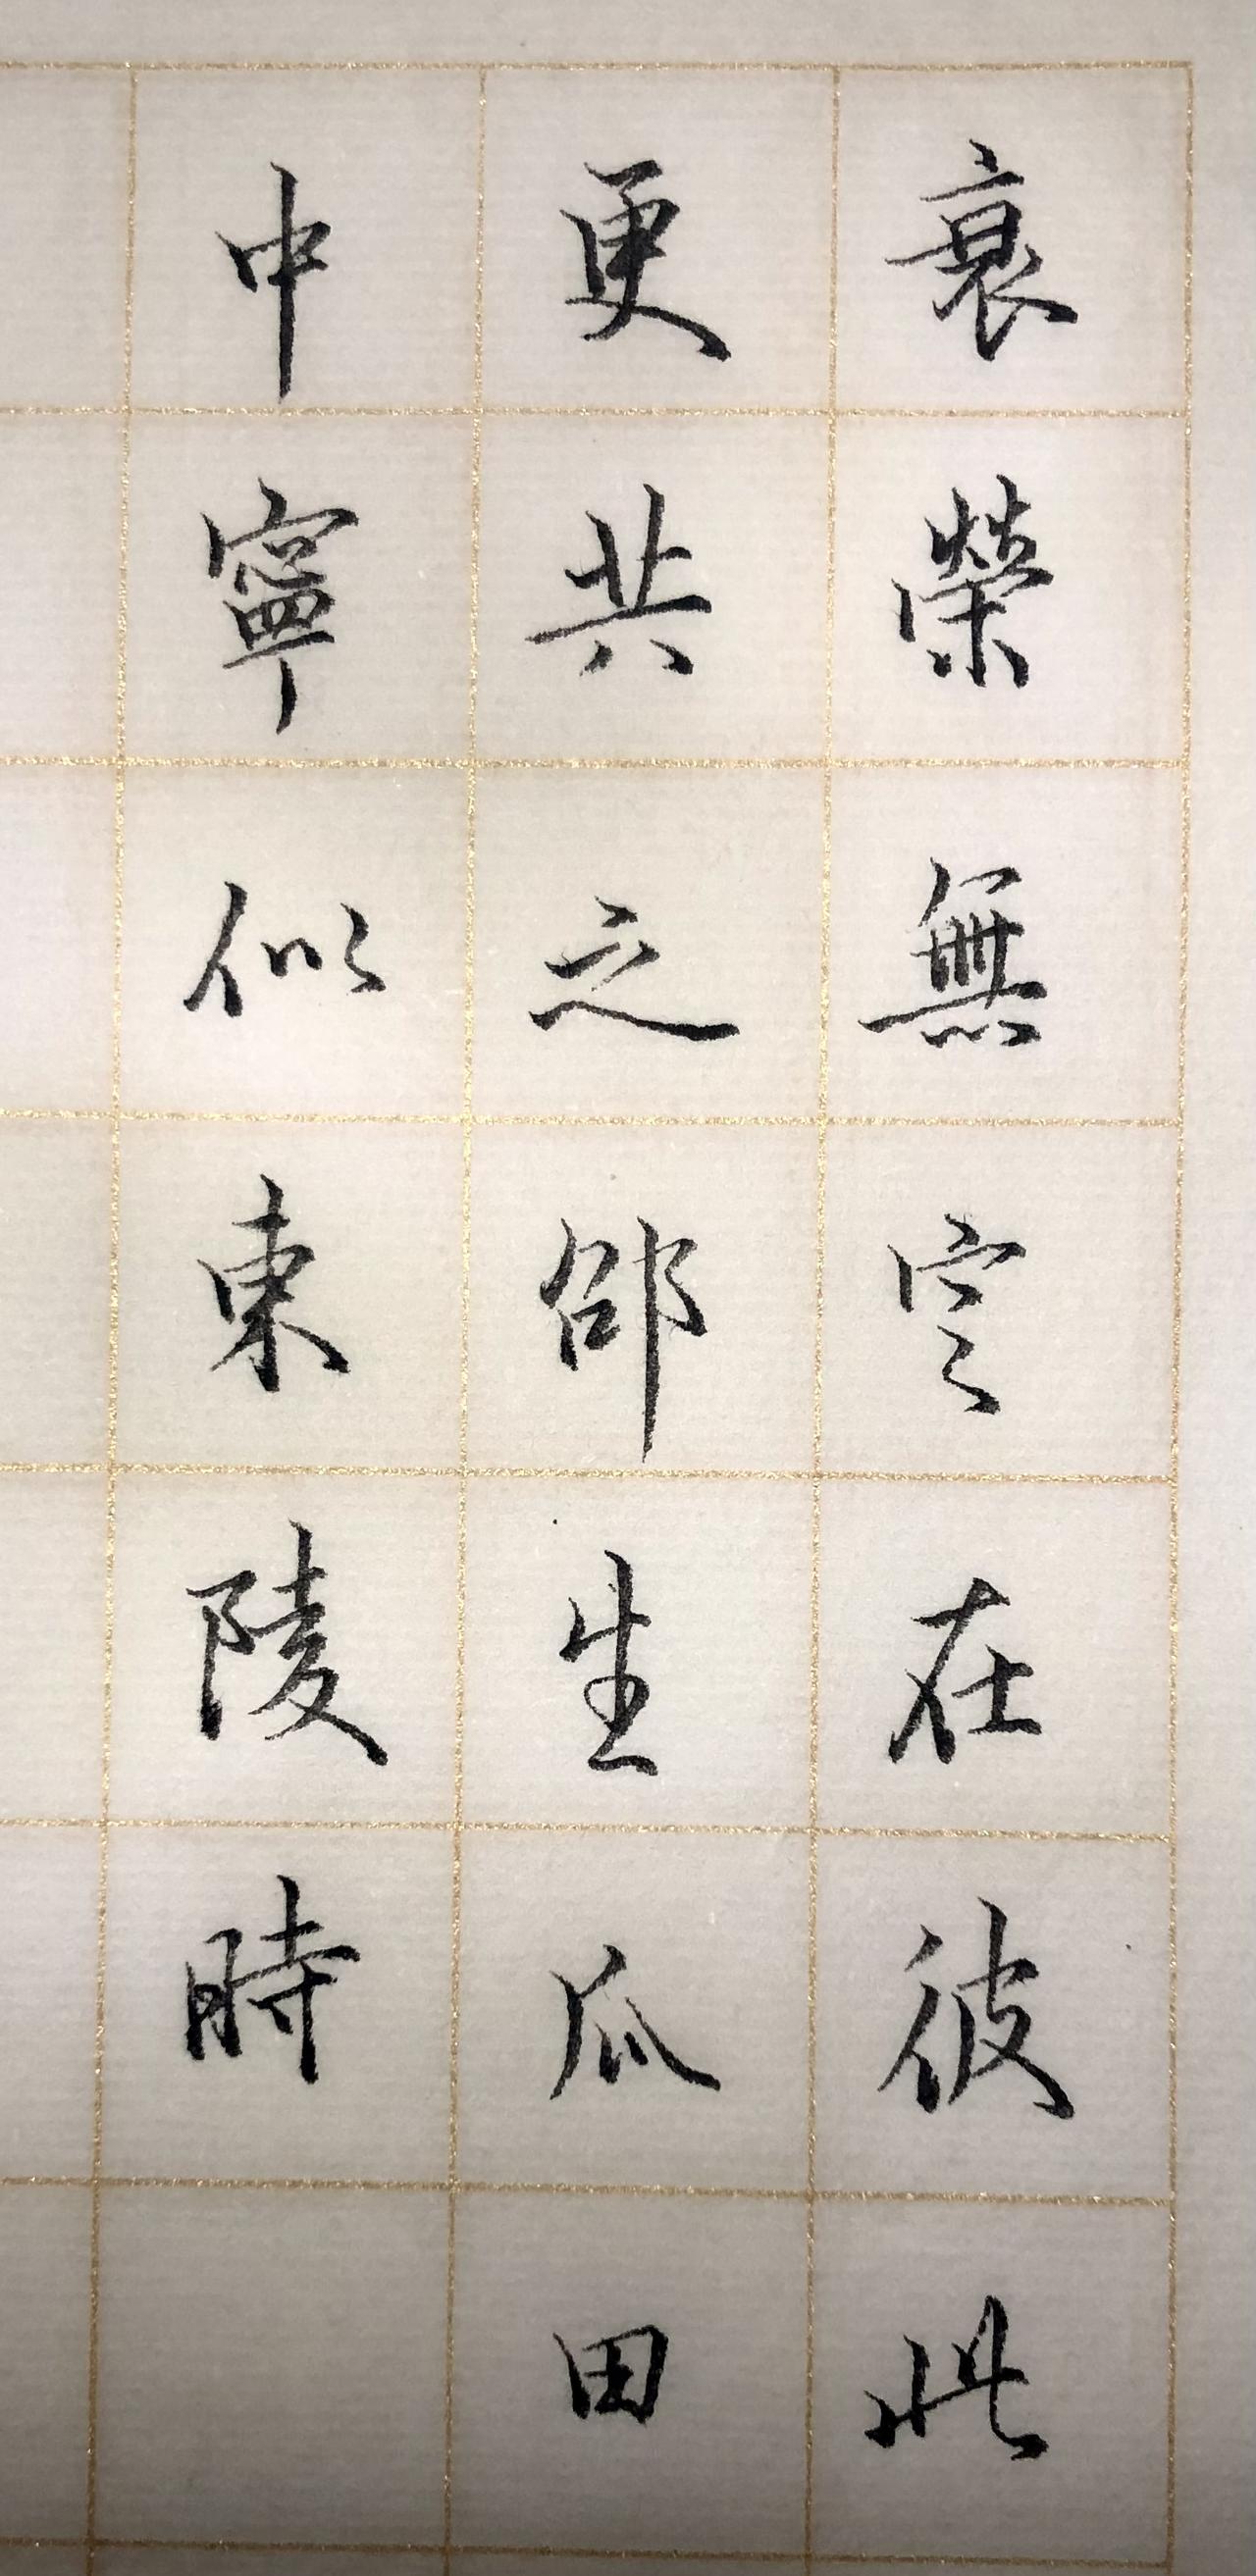 衰榮無定在彼此
更共之邵生瓜田
中寧似東陵時